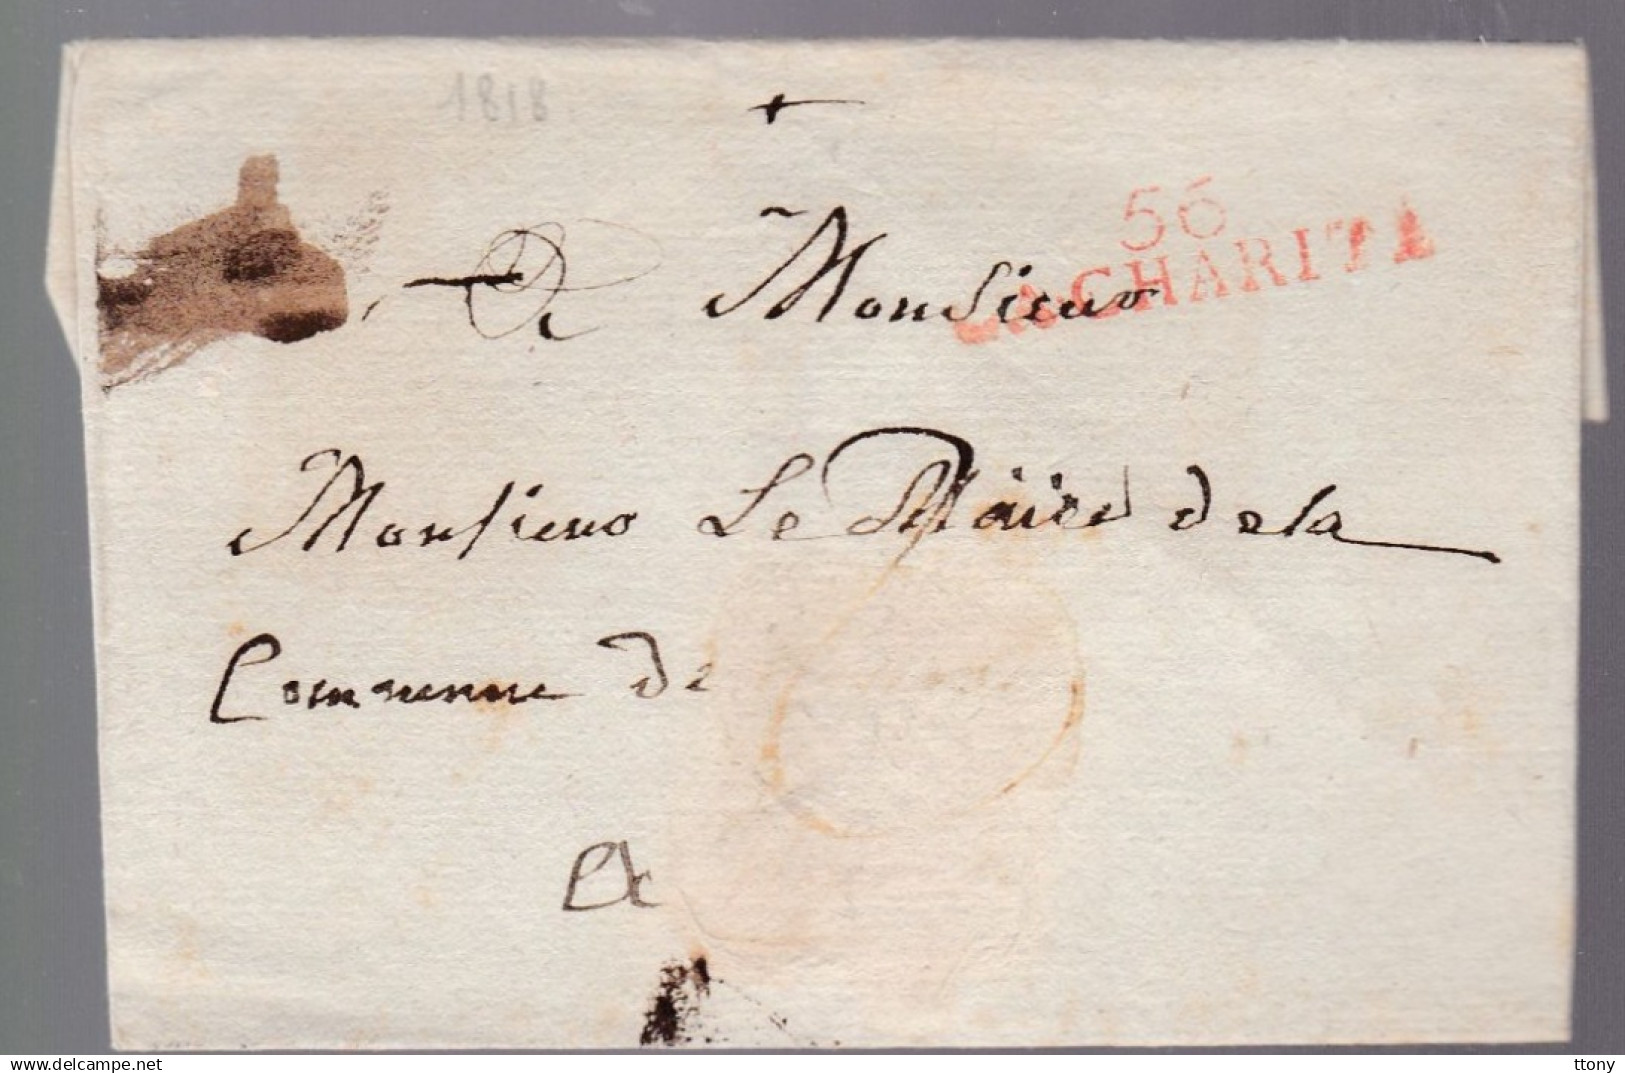 1818.
56
LA CHARITÉ
A Monsieur
Monsieur Le Maire de la
Commune de
A
delcampe.net
ttony